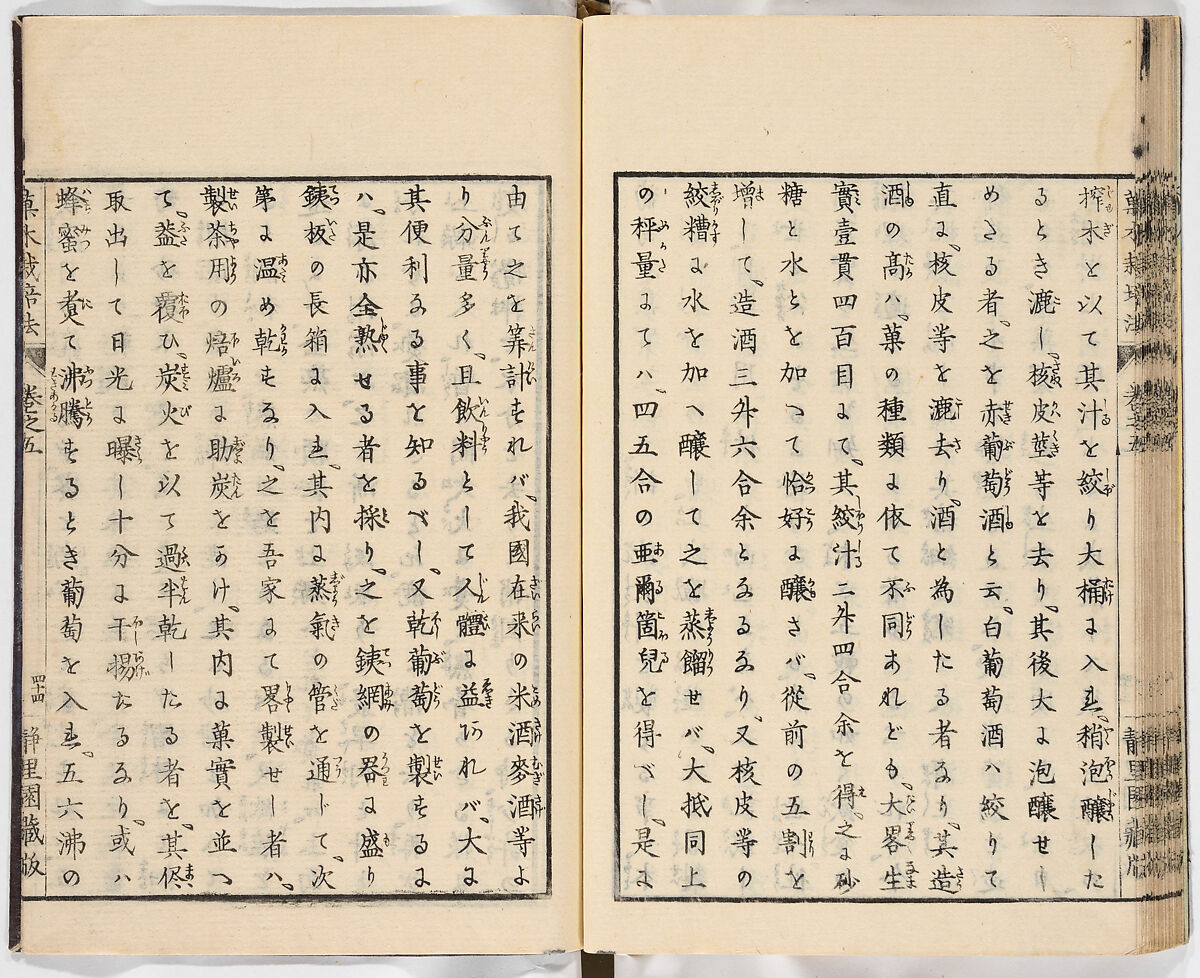 搾木を以て其汁を絞り大桶に入れ、稍泡醸した
るとき漉し、核皮莖等を去り、其後大に泡醸せし
めたる者、之を赤葡萄酒と云、白葡萄酒ハ絞りて
直に、核皮等を漉去り、酒と為したる者なり、其造
酒の高ハ、菓の種類に依て不同あれども、大畧生
實壹貫四百目にて、其絞汁二升四合余を得、之に砂
糖と水とを加へて恰好に醸さバ、従前の五割を
増して、造酒三升六合余となるなり、又核皮等の
絞糟に水を加へ醸して之を蒸餾せバ、大抵同上
の秤量にてハ、四五合の亜爾箇兒を得べし、是に
由て之を筭計すれバ、我國在来の米酒麥酒等よ
り分量多く、且飲料として人體に益あれバ、大に
其便利なる事を知るべし、又乾葡萄を製するに
ハ、是亦全熟せる者を採り、之を銕網の器に盛り
銕板の長箱に入れ、其内に蒸氣の管を通じて、次
第に温め乾すなり、之を吾家にて畧製せし者ハ、
製茶用の焙爐に助炭をかけ、其内に菓實を並へ
て、葢を覆ひ、炭火を以て過半乾したる者を、其侭
取出して日光に曝し十分に干揚たるなり、或ハ
蜂蜜を煑て沸騰するとき葡萄を入れ、五六沸の
菓木栽培法 巻之五 四十四 静里園藏版